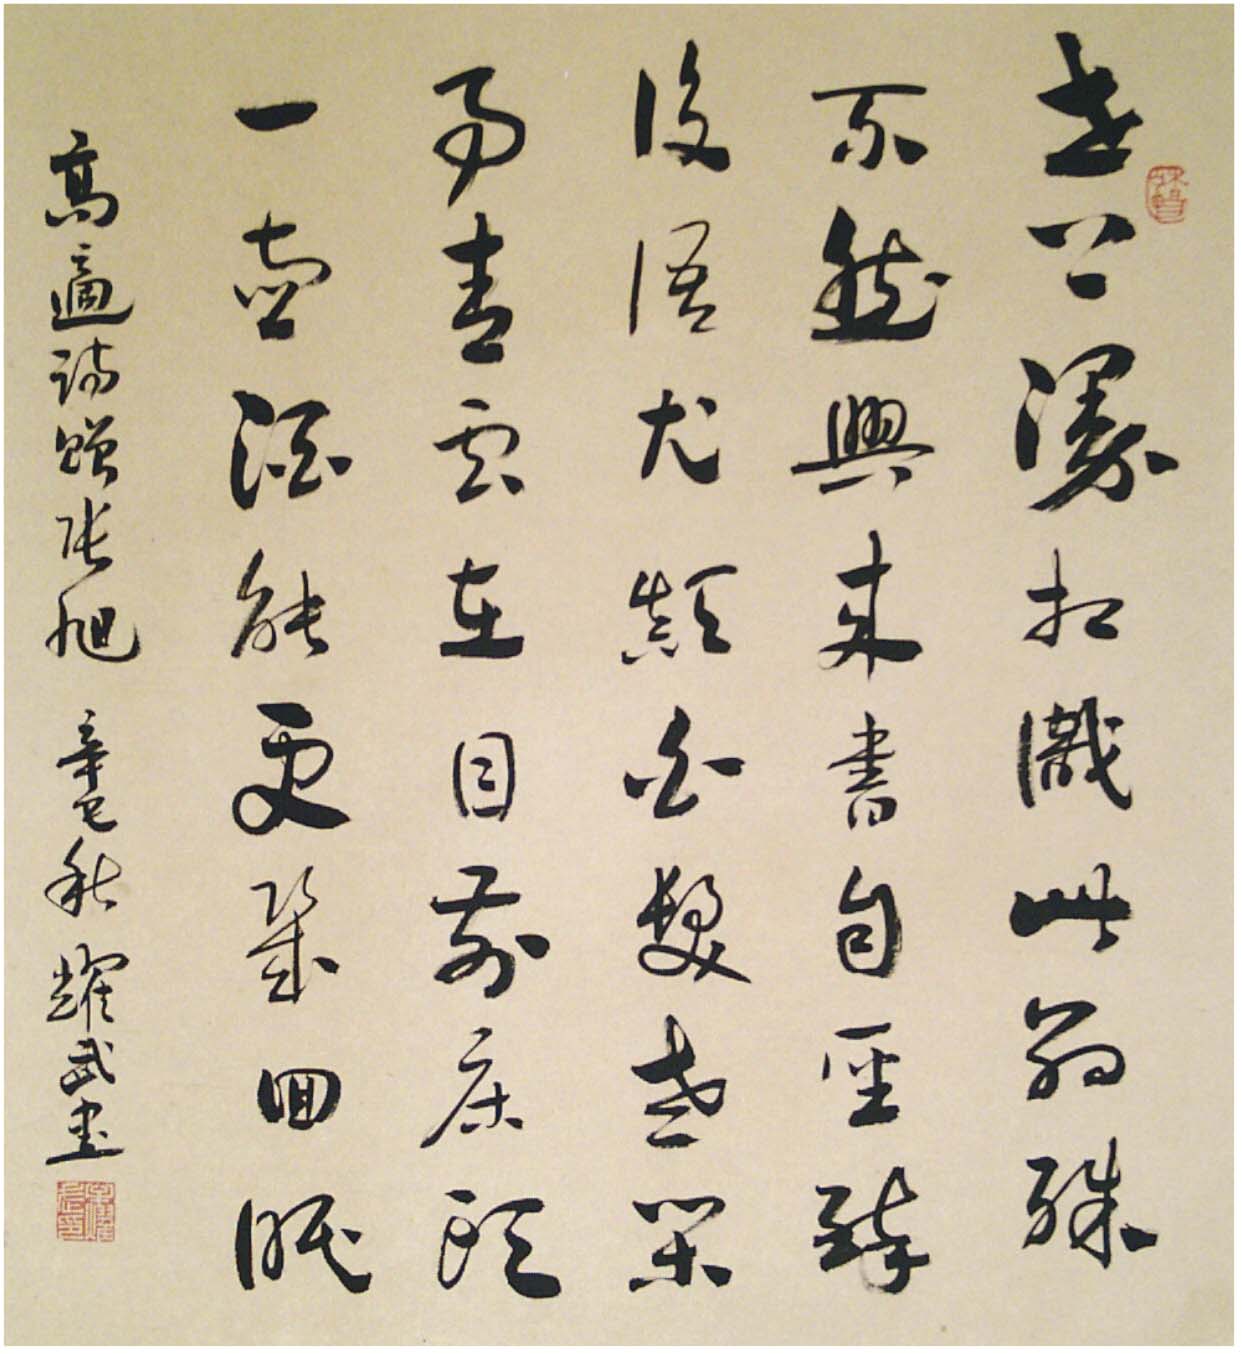 世上漫相識此翁殊
不然興來書自聖醉
後語尤顛白髮老閑
事青雲在目前床頭
一壺酒能更幾回眠
高適詩贈張旭 辛巳秋 耀武書